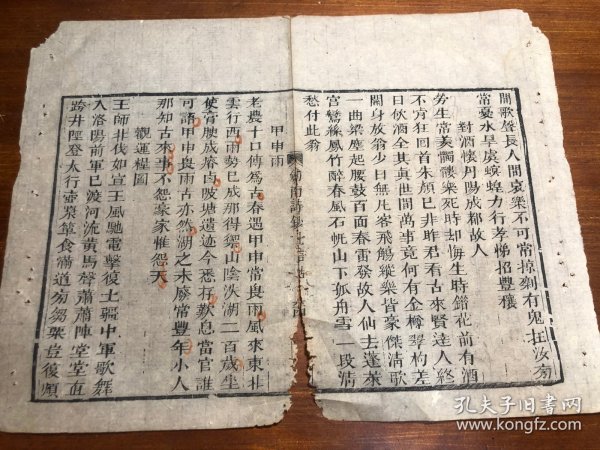 間歌聲長人間哀樂不可常掠剩有鬼在汝旁
常憂水旱虞螟蝗力行孝悌招豐穰
對酒懷丹陽成都故人
勞生常羨髑髏樂死時却悔生時錯花前有酒
不肯狂回首朱顏已非昨君看古來賢達人終
日飲酒全其真世間萬事竟何有金樽翠杓差
關身放翁少日無凡客飛觴縱樂皆豪傑清歌
一曲梁塵起腰鼓百面春雷發故人仙去蓬萊
宮鸞絲鳳竹醉春風石帆山下孤舟雪一段清
愁付此翁
劍南詩鈔
甲申雨
老農十口傳爲古春遇甲申常畏雨風來東北
雲行西雨勢已成那得禦山陰泆湖二百歲坐
使膏腴成瘠鹵陂塘遺迹今悉存歎息當官誰
可語甲申畏雨古亦然湖之未廢常豐年小人
那知古來事不怨豪家惟怨天
觀運糧圖
王師北伐如宣王風馳電擊復土疆中軍歌舞
入洛陽前軍已渡河流黃馬聲蕭蕭陣堂堂直
跨井陘登太行壺漿簞食滿道旁芻粟豈復煩
孔夫子旧書网
www.kongfz.com